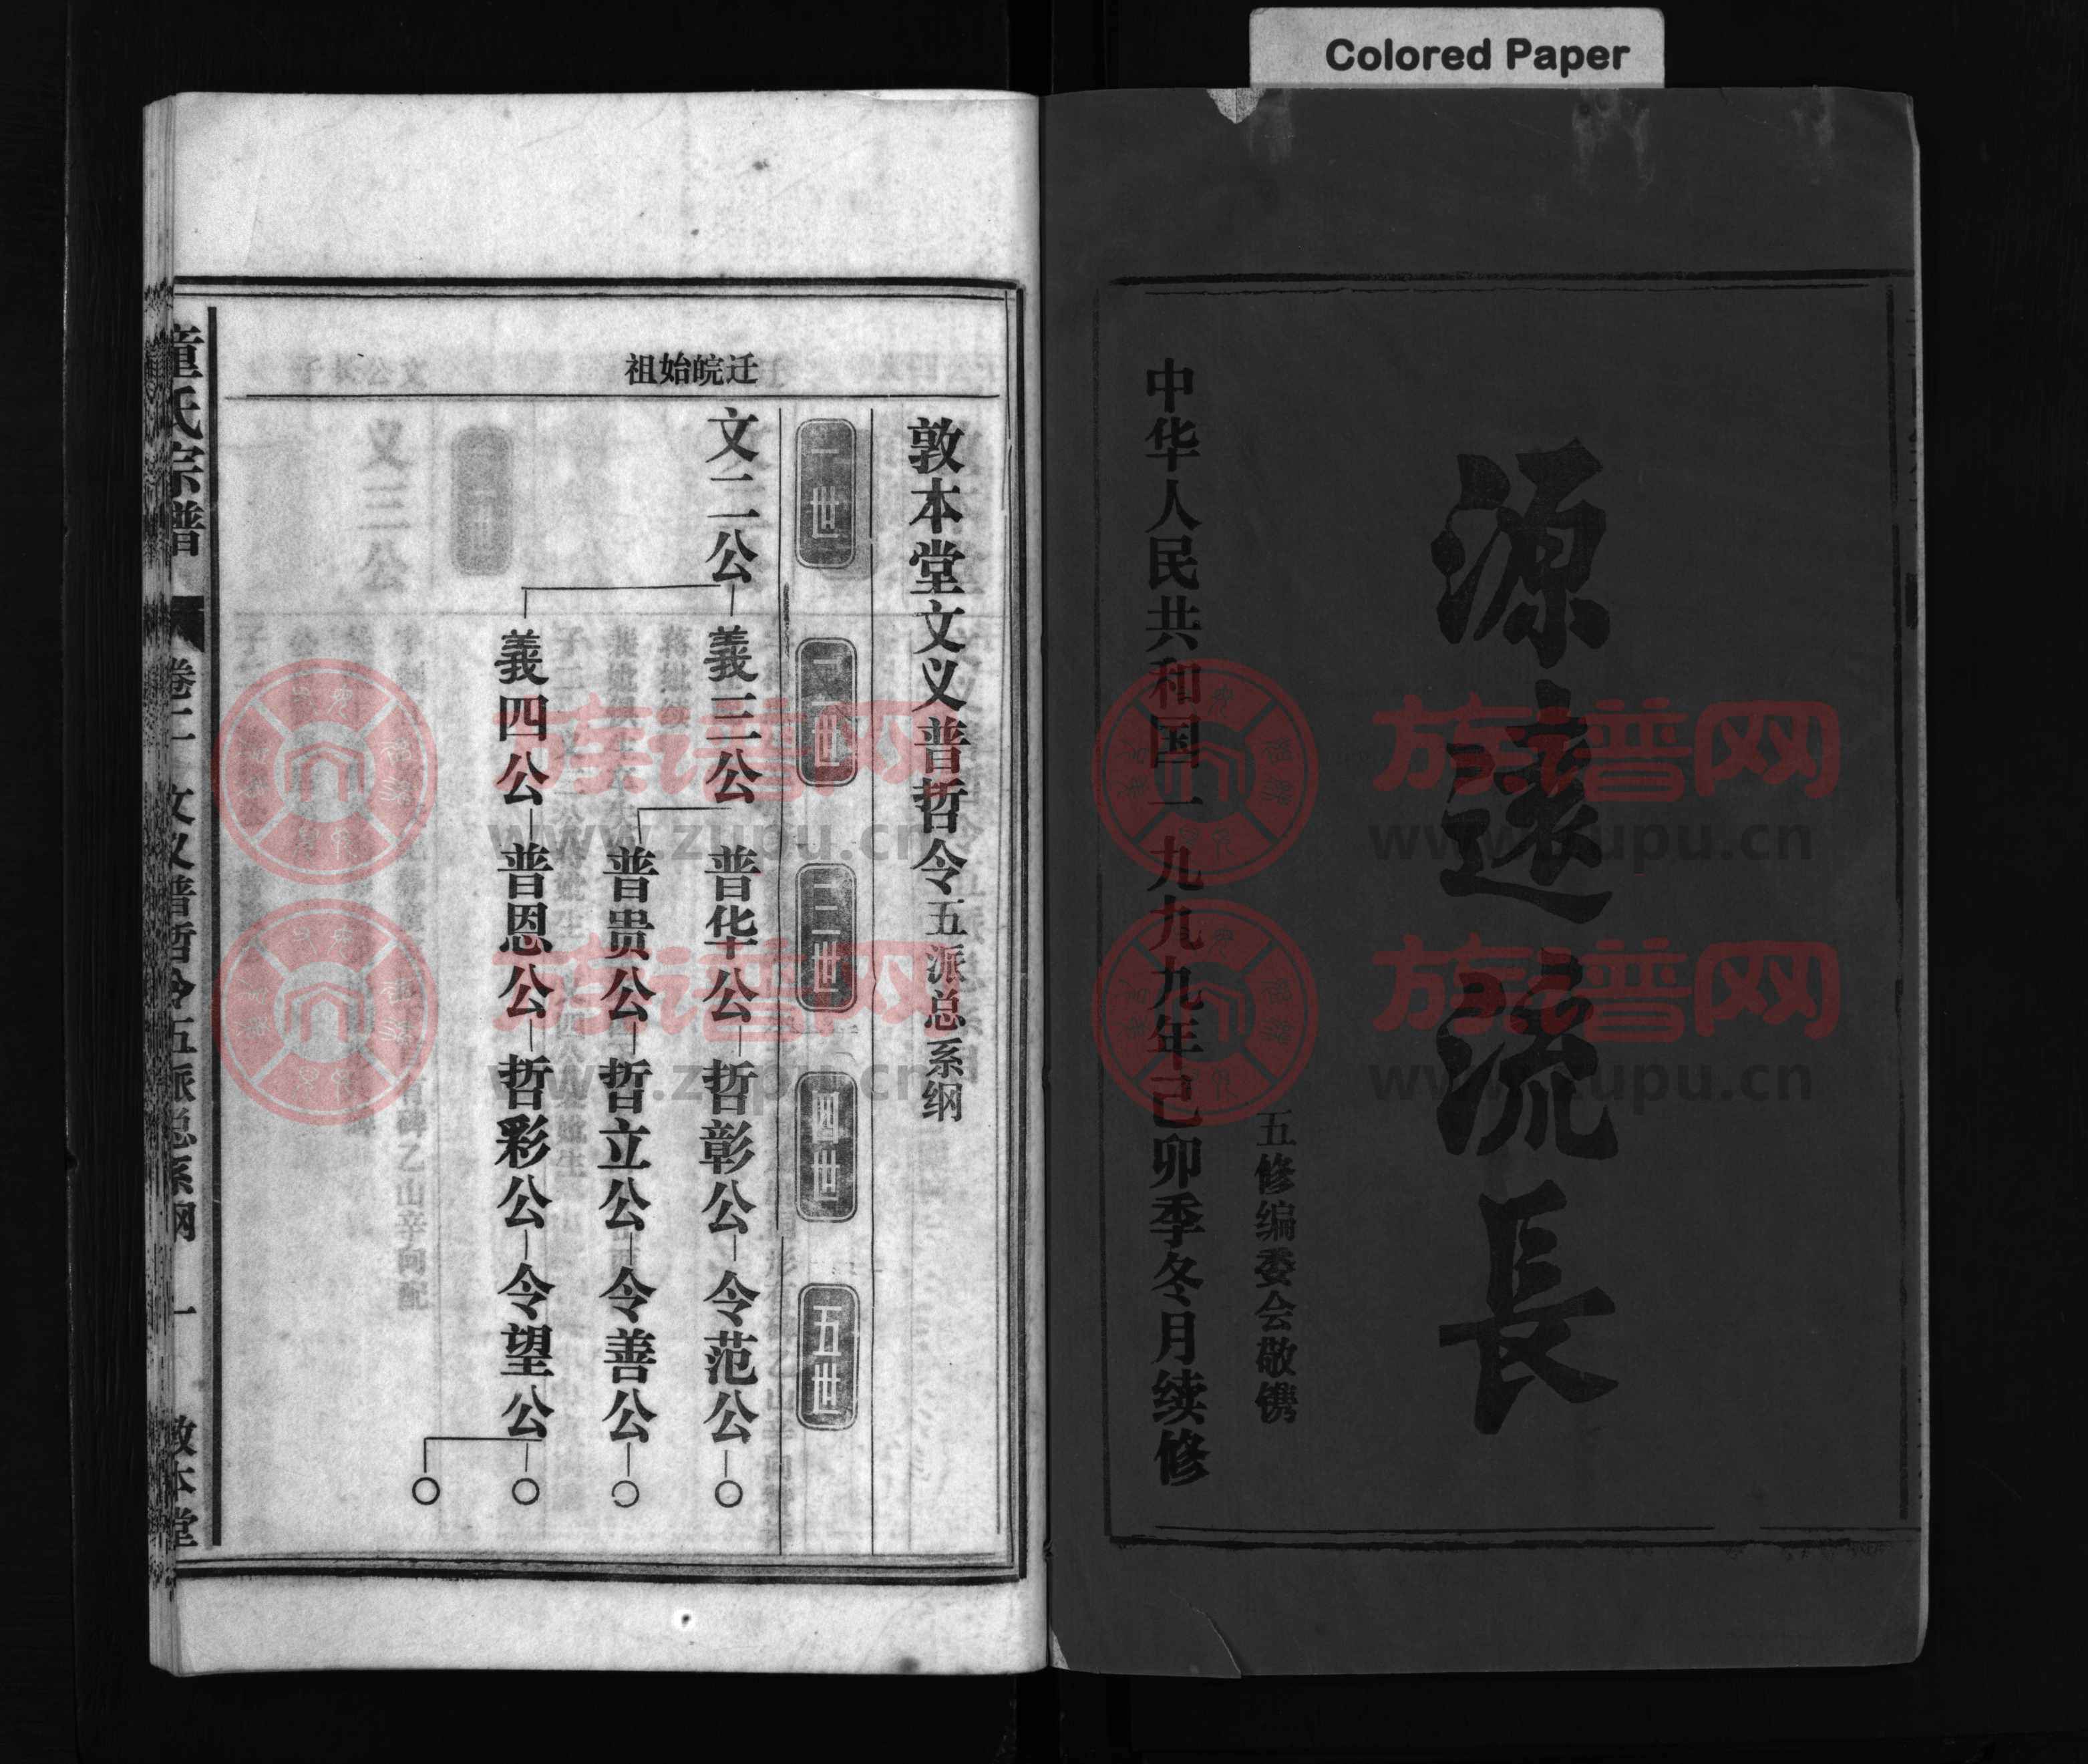 Colored Paper
源遠流長
五修编委会敬镌
中华人民共和国一九九九年己卯季冬月续修
敦本堂文义普哲令五派总系纲
一世
二世
三世
四世
五世
迁皖始祖
文二公
義三公
普华公
哲彰公
令范公
普贵公
哲立公
令善公
義四公
普恩公
哲彩公
令望公
童氏宗谱
卷二
文义普哲令五派总系纲
一
敦本堂
族谱网
www.zupu.cn
族谱网
www.zupu.cn
族谱网
www.zupu.cn
族谱网
www.zupu.cn